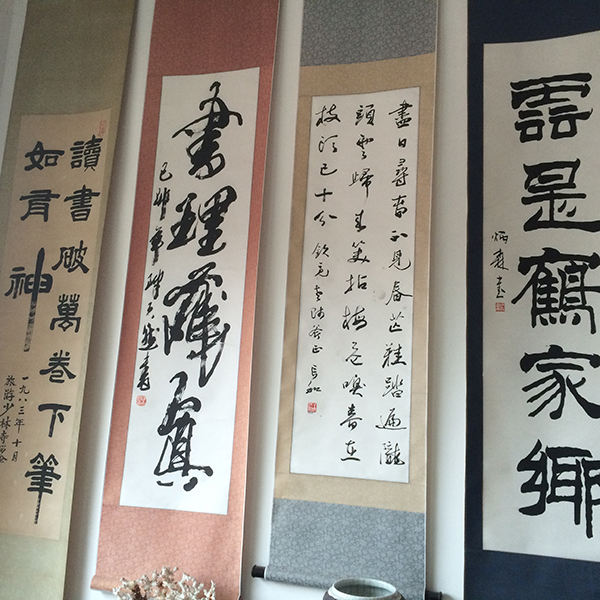 雲是鶴家鄉
炳森書
盡日尋春不見春芒鞋踏遍隴
頭雲歸來笑拈梅花嗅春在
枝頭已十分
書理
讀書破萬卷下筆
如有神
一九八三年十月
旅游少林寺